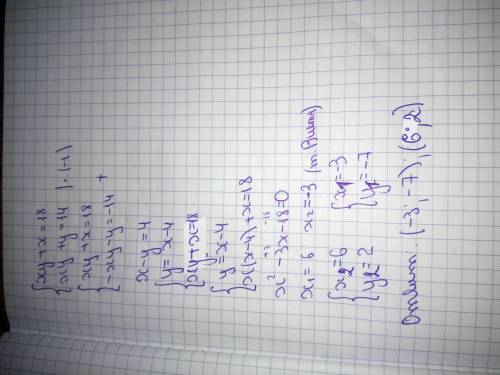 {xy+x=18
{xy+y=14 |·(-1)
{xy+x=18
{-xy-y=-14 +
x-y=4
{y=x-4
{xy+x=18
{y=x-4
{x(x-4)+x=18
x²-3x-18=0
x₁=6 x₂=-3 (т.Виета)
{x₂=6 {x₁=-3
{y₂=2 {y₁=-7
Ответ: (-3;-7);(6;2)